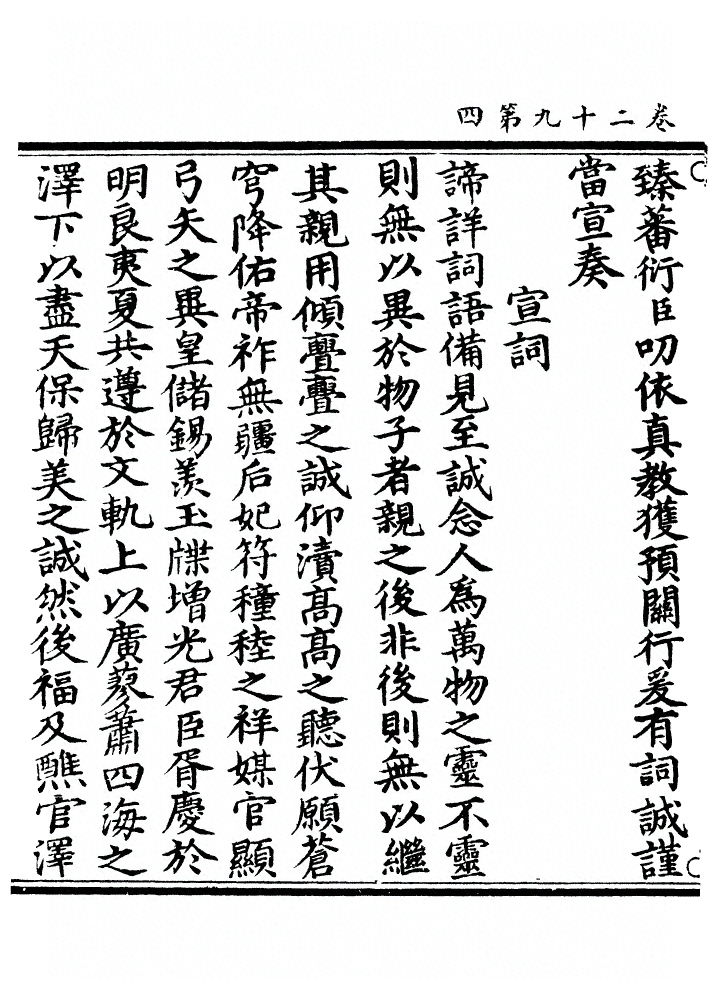 卷二十九第四
臻蕃衍臣叨依真教獲預關行爰有詞誠謹
當宣奏
宣詞
諦詳詞語備見至誠念人為萬物之靈不靈
則無以異於物子者親之後非後則無以繼
其親用傾亹亹之誠仰瀆髙髙之聽伏願蒼
穹降佑帝祚無疆后妃符穜稑之祥媒官顯
弓矢之異皇儲錫羨玉牒增光君臣胥慶於
明良夷夏共遵於文軌上以廣蓼蕭四海之
澤下以盡天保歸美之誠然後福及醮官澤